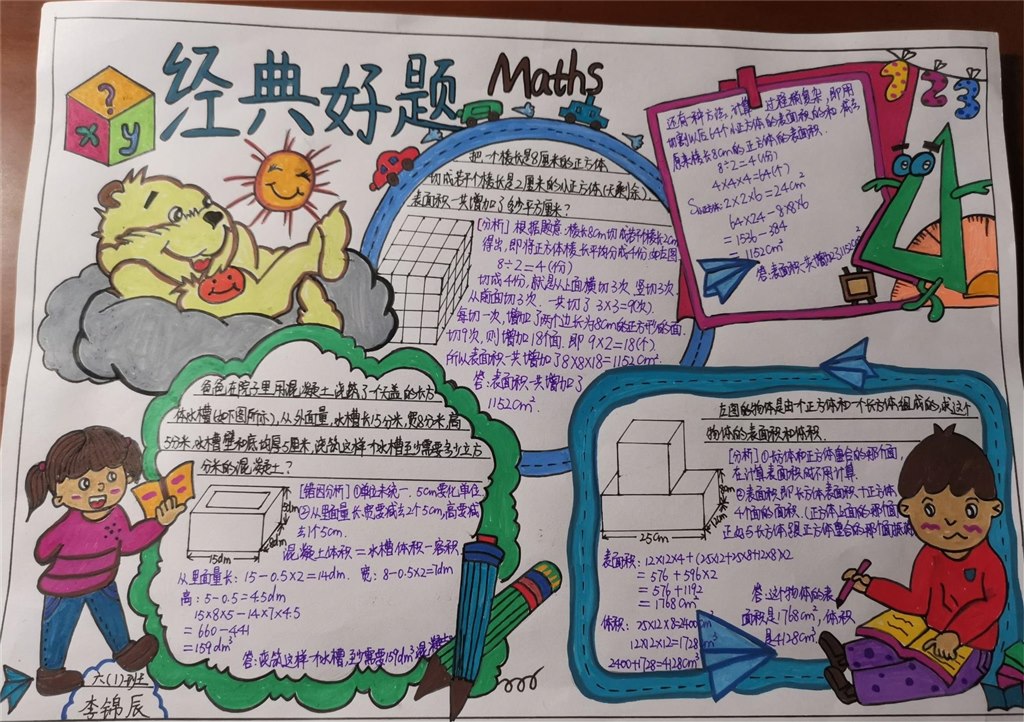 经典好题
Maths
?
x y
1 2 3
把一个棱长是8厘米的正方体
切成若干个棱长是2厘米的小正方体(无剩余),
表面积一共增加了多少平方厘米?
[分析]根据题意:棱长8cm切成若干个棱长2cm
得出,即将正方体棱长平均分成4份如左图
8÷2=4(份)
切成4份,就是从上面横切3次 竖切3次
从前面切3次.一共切了3×3=9(次)
每切一次,增加了两个边长为8cm的正方形的面.
切9次,则增加18个面.即9×2=18(个)
所以表面积一共增加了8×8×18=1152cm².
答:表面积一共增加了
1152cm².
还有一种方法,计算过程稍复杂,即用
切割以后64个小正方体的表面积的和减去
原来棱长8cm的正方体的表面积.
8÷2=4(份)
4×4×4=64(个)
S小正方体:2×2×6=24cm²
64×24-8×8×6
=1536-384
=1152cm²
答:表面积一共增加了1152cm²
爸爸在院子里用混凝土浇筑了个无盖的长方
体水槽(如下图所示),从外面量,水槽长15分米,宽8分米,高
5分米.水槽壁和底均厚5厘米,浇筑这样一个水槽至少需要多少立方
分米的混凝土?
[错因分析]①单位未统一.5cm要化单位
②从里面量长宽要减去2个5cm,高要减
去1个5cm.
混凝土体积=水槽体积-容积
5dm
8dm
15dm
从里面量长:15-0.5×2=14dm.宽:8-0.5×2=7dm
高:5-0.5=4.5dm
15×8×5-14×7×4.5
=660-441
=159dm³
答:浇筑这样一个水槽,至少需要159dm³混凝土
左图的物体是由个正方体和一个长方体组成的,求这个
物体的表面积和体积.
[分析]①长方体和正方体重合的那个面,
在计算表面积时不用计算.
②表面积.即长方体表面积+正方体
4个面的面积.(正方体上面的那个面
正好与长方体跟正方体重合的那个面抵消
8cm
12cm
25cm
表面积:12×12×4+(25×12+25×8+12×8)×2
=576+596×2
=576+1192
=1768cm²
体积:25×12×8=2400cm³
12×12×12=1728cm³
2400+1728=4128cm³
答:这个物体的表
面积是1768cm²,体积
是4128cm³.
六(1)班
李锦辰